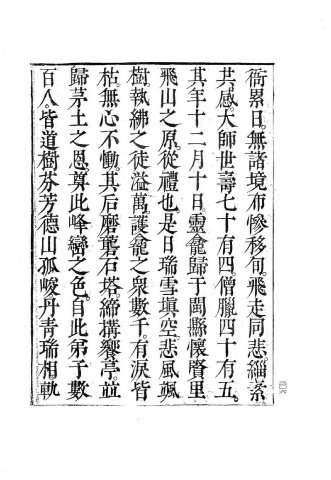 衙累日。無諸境布慘移旬。飛走同悲。緇素
共感。大師世壽七十有四。僧臘四十有五。
其年十二月十日。靈龕歸于閩縣懷賢里
飛山之原。從禮也。是日瑞雪塡空。悲風颯
樹。執紼之徒溢萬。護龕之衆數千。有淚皆
枯。無心不慟。其后磨礱石塔。締搆饗亭。並
歸茅土之恩。尊此峰巒之色。自此弟子數
百人。皆道樹芬芳。德山孤峻。丹青瑞相。軌